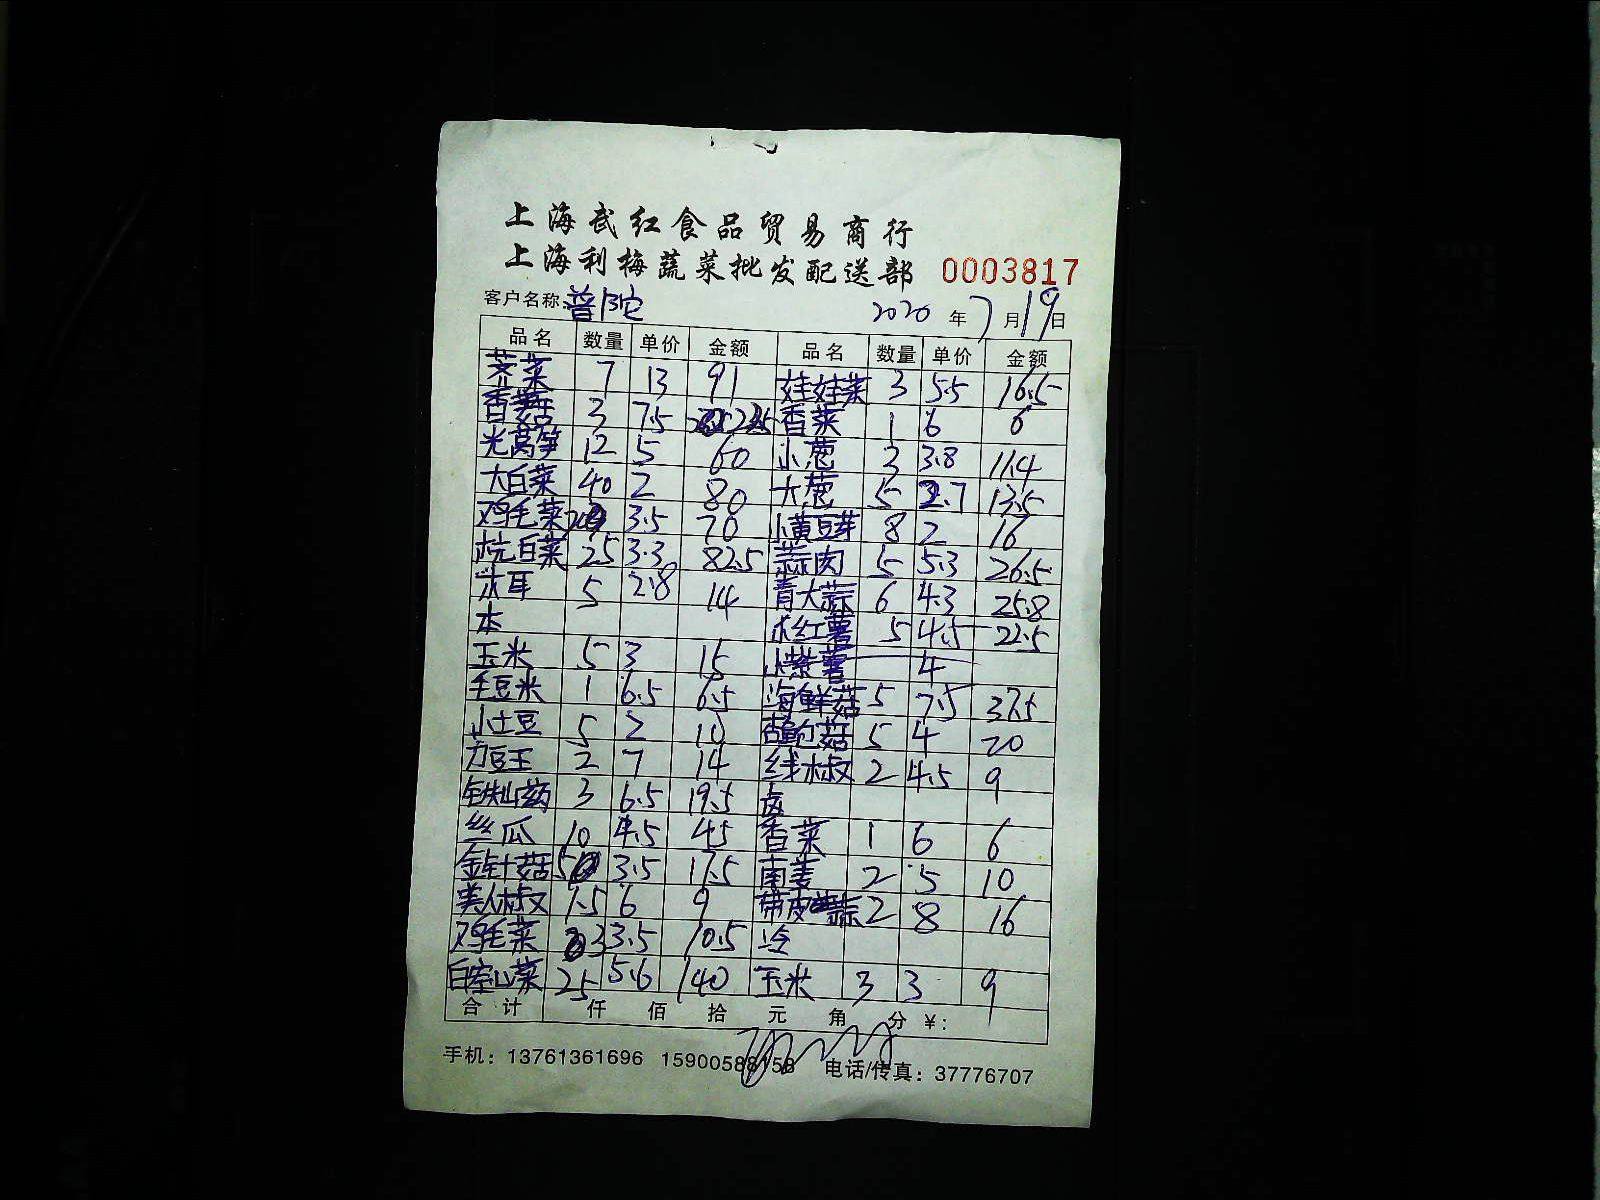 上海武红食品贸易商行
上海利梅蔬菜批发配送部 0003817
客户名称: 普陀 2020 年 7 月 19 日
品名 数量 单价 金额 品名 数量 单价 金额
芥菜 7 13 91 娃娃菜 3 5.5 16.5
香菇 3 7.5 22.5 香菜 1 6 6
光莴笋 12 5 60 小葱 3 3.8 11.4
大白菜 40 2 80 大葱 5 2.7 13.5
鸡毛菜 20 3.5 70 小黄豆芽 8 2 16
杭白菜 25 3.3 82.5 蒜肉 5 5.3 26.5
木耳 5 2.8 14 青大蒜 6 4.3 25.8
本 小红薯 5 4.5 22.5
玉米 5 3 15 小紫薯 4
毛豆米 1 6.5 6.5 海鲜菇 5 7.5 37.5
小土豆 5 2 10 杏鲍菇 5 4 20
刀豆王 2 7 14 线椒 2 4.5 9
铁山药 3 6.5 19.5 卤
丝瓜 10 4.5 45 香菜 1 6 6
金针菇 5 3.5 17.5 南姜 2 5 10
美人椒 1.5 6 9 带皮蒜 2 8 16
鸡毛菜 3 3.5 10.5 冷
白空山菜 25 5.6 140 玉米 3 3 9
合计 仟 佰 拾 元 角 分 ¥:
手机: 13761361696 15900588158 电话/传真: 37776707